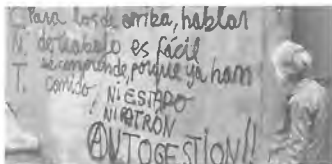 C. Para los de arriba, hablar
N. de trabajo es fácil
T. se comprende, porque ya han
comido,
NI ESTADO
NI PATRÓN
AUTOGESTION!!